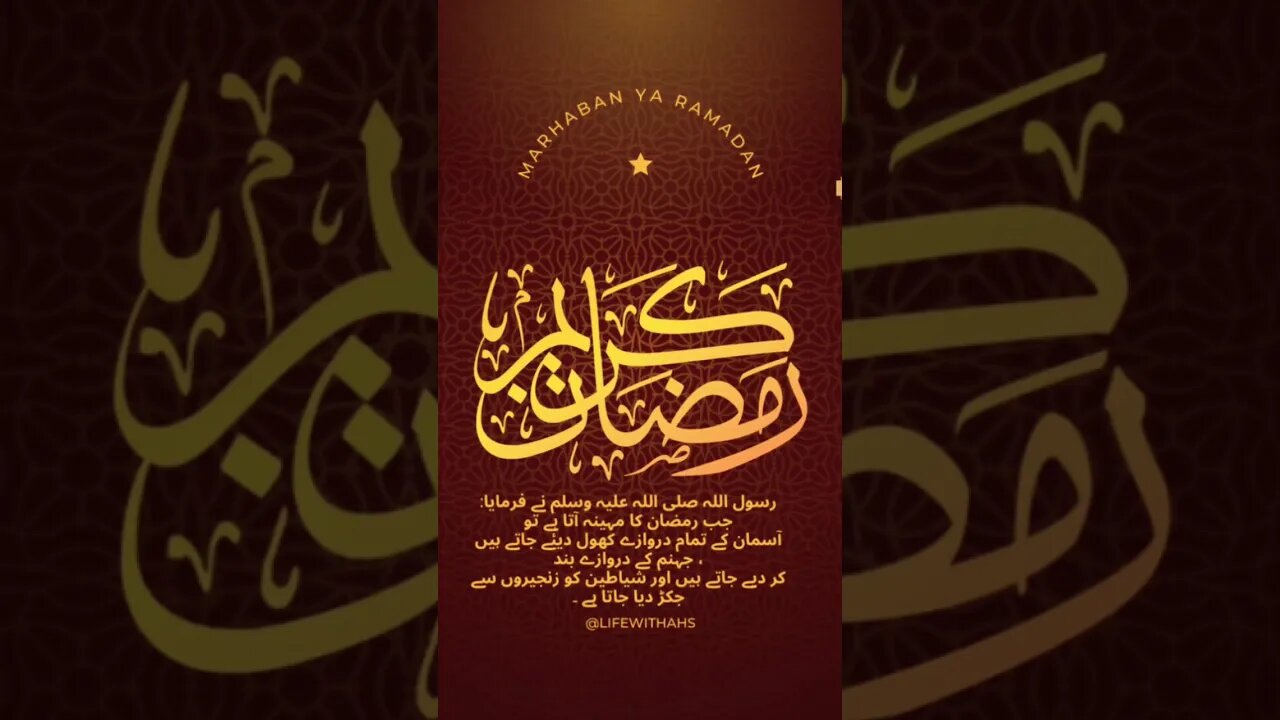 MARHABAN YA RAMADAN
رمضان كريم
رسول اللہ صلی اللہ علیہ وسلم نے فرمایا:
جب رمضان کا مہینہ آتا ہے تو
آسمان کے تمام دروازے کھول دیئے جاتے ہیں
، جہنم کے دروازے بند
کر دیے جاتے ہیں اور شیاطین کو زنجیروں سے
جکڑ دیا جاتا ہے ۔
@LIFEWITHAHS